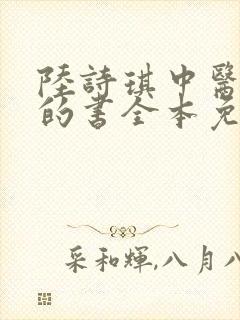 陸詩琪中醫
的書全本免
采和輝,八月八